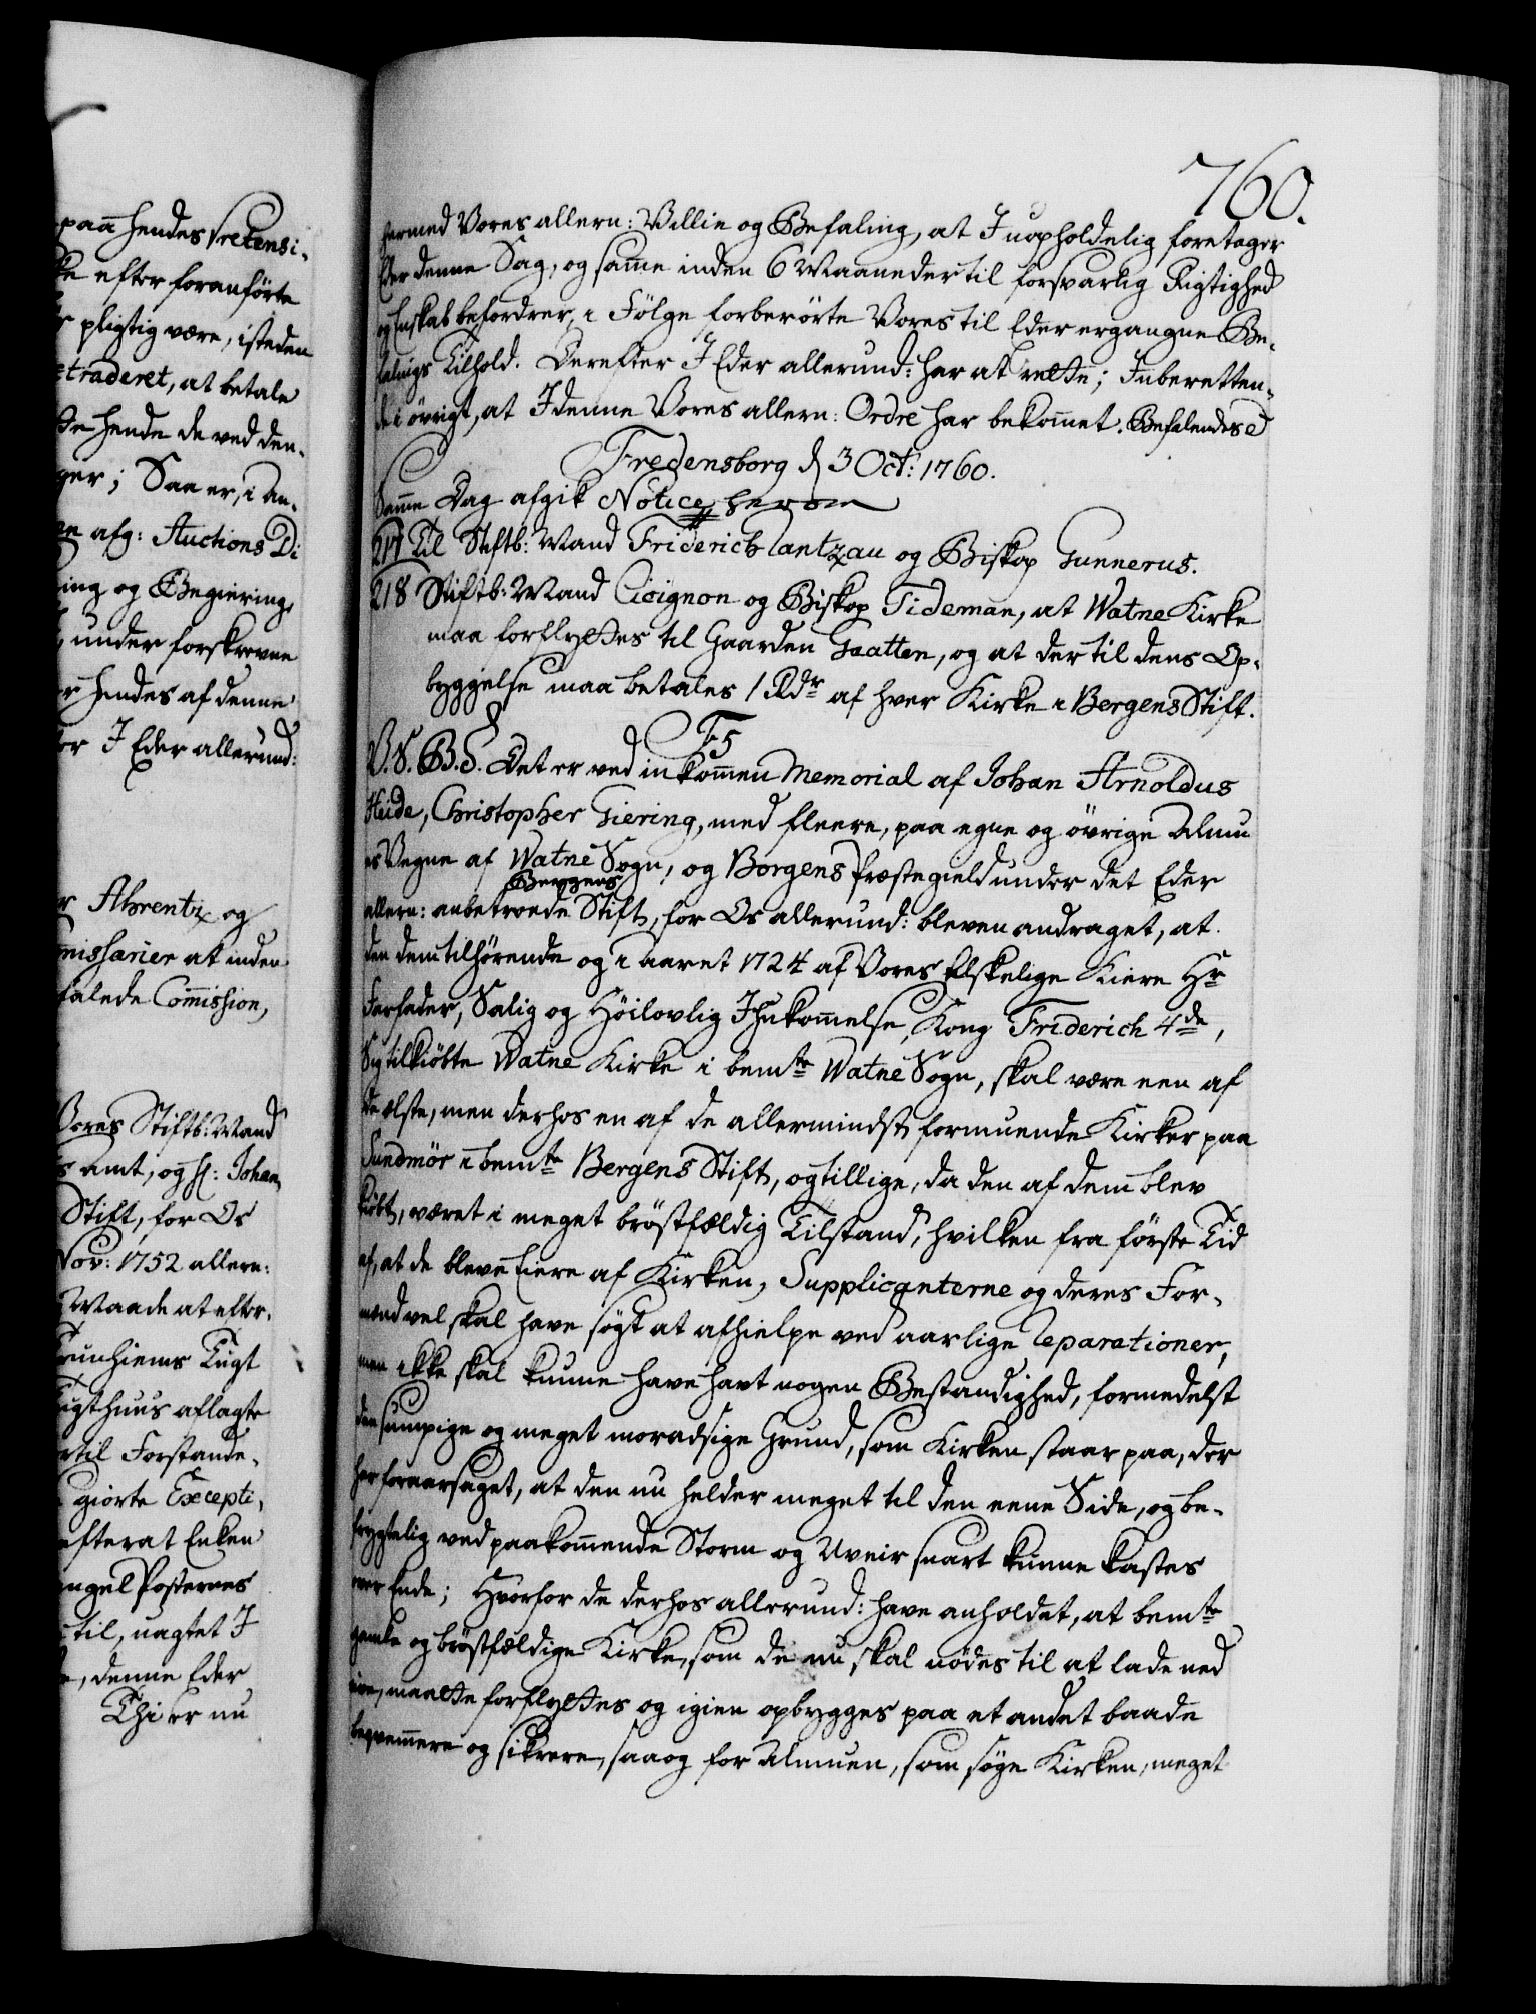 paa hendes Prætensi-
efter foranförte
pligtig være, isteden
extraderet, at betale
hende de ved den-
ger; Saa er, i An-
afg: Auctions Di
ing og Begiering,
under forskrevne
hendes af denne
for I Eder allerund:
Ahrentz og
missarier at inden
falede Commission,
Vores Stiftb: Mand
Amt, og Sl: Johan
Stift, for Os
Nov: 1752 allern:
Maade at efter-
Trunhiems Tugt
Tugthuus aflagte
til Forstande-
giorte Excepti-
efter at Enken
mangel Posternes
til, uagtet I
denne Eder
Thi er nu
760.
hermed Vores allern: Villie og Befaling, at I uopholdelig foretager
Eder denne Sag, og samme inden 6 Maaneder til forsvarlig Rigtighed
og Endskab befordrer, i Fölge forberörte Vores til Eder ergangne Be-
falings Tilhold. Derefter I Eder allerund: har at rette; Indberetten-
de i övrigt, at I denne Vores allern: Ordre har bekommet. Befalendes
Fredensborg d 3 Oct: 1760.
Samme Dag afgik Notice herom
217 Til Stiftb: Mand Friderich Rantzau og Biskop Gunnerus.
218 Stiftb: Mand Cicignon og Biskop Tideman, at Watne Kirke
maa forflyttes til Gaarden Gaatten, og at der til dens Op-
byggelse maa betales 1 Rdr af hver Kirke i Bergens Stift.
F5
V. S. B. S. Det er ved inkommen Memorial af Johan Arnoldus
Heide, Christopher Giering, med fleere, paa egne og övrige Almu
es Vegne af Watne Sogn, og Borgens Præstegield under det Eder
Bergens
allern: anbetroede Stift, for Os allerund: bleven andraget, at
den dem tilhörende og i Aaret 1724 af Vores Elskelige Kiere Hr
Farfader, Salig og Höilovlig Ihukommelse, Kong Friderich 4de,
Sig tilkiöbte Watne Kirke i bemte Watne Sogn, skal være een af
de ælste, men derhos en af de allermindst formuende Kirker paa
Sundmör i bemte Bergens Stift, og tillige, da den af dem blev
kiöbt, været i meget bröstfældig Tilstand, hvilken fra förste Tid
af, at de bleve Eiere af Kirken, Supplicanterne og deres For-
mænd vel skal have sögt at afhielpe ved aarlige Reparationer,
men ikke skal kunne have havt nogen Bestandighed, formedelst
den sumpige og meget moradsige Grund, som Kirken staar paa, der
har foraarsaget, at den nu helder meget til den eene Side, og be-
frygtelig ved paakommende Storm og Uveir snart kunne kastes
over Ende; Hvorfor de derhos allerund: have anholdet, at bemte
gamle og bröstfældige Kirke, som de nu skal nödes til at lade ned
rive, maatte forflyttes og igien opbygges paa et andet baade
beqvemmere og sikrere, saa og for Almuen, som söge Kirken, meget